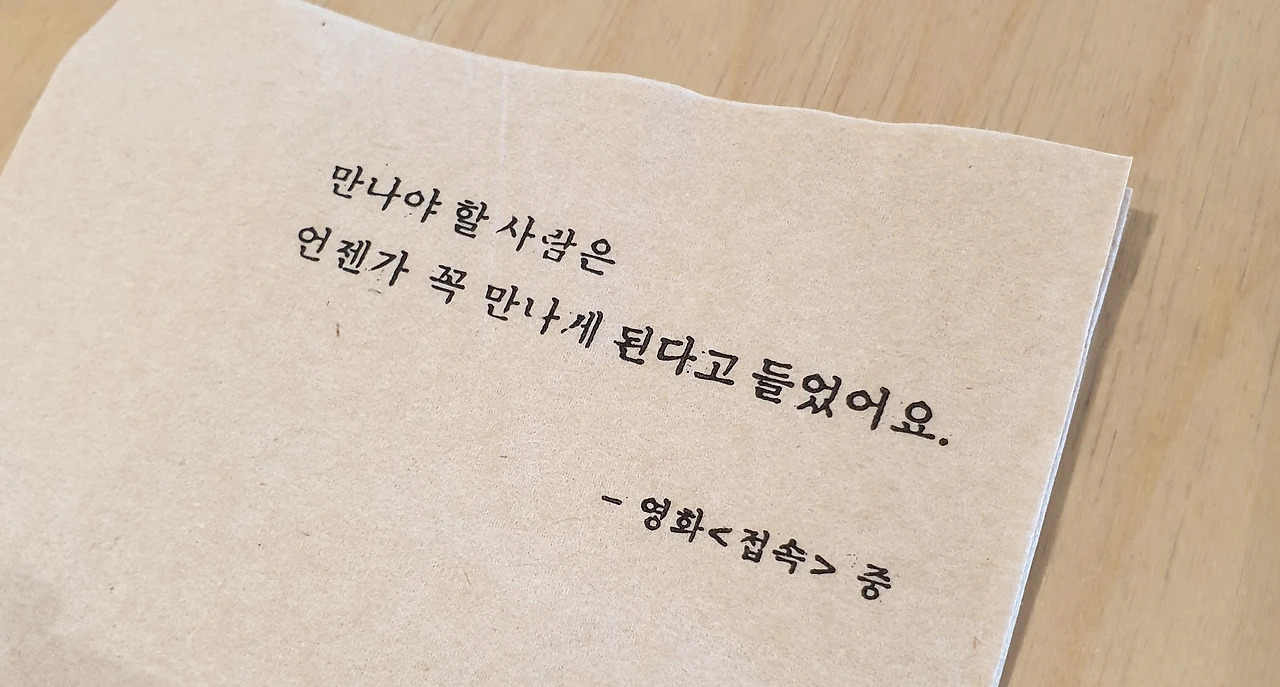 만나야 할 사람은
언젠가 꼭 만나게 된다고 들었어요.
- 영화<접속> 중